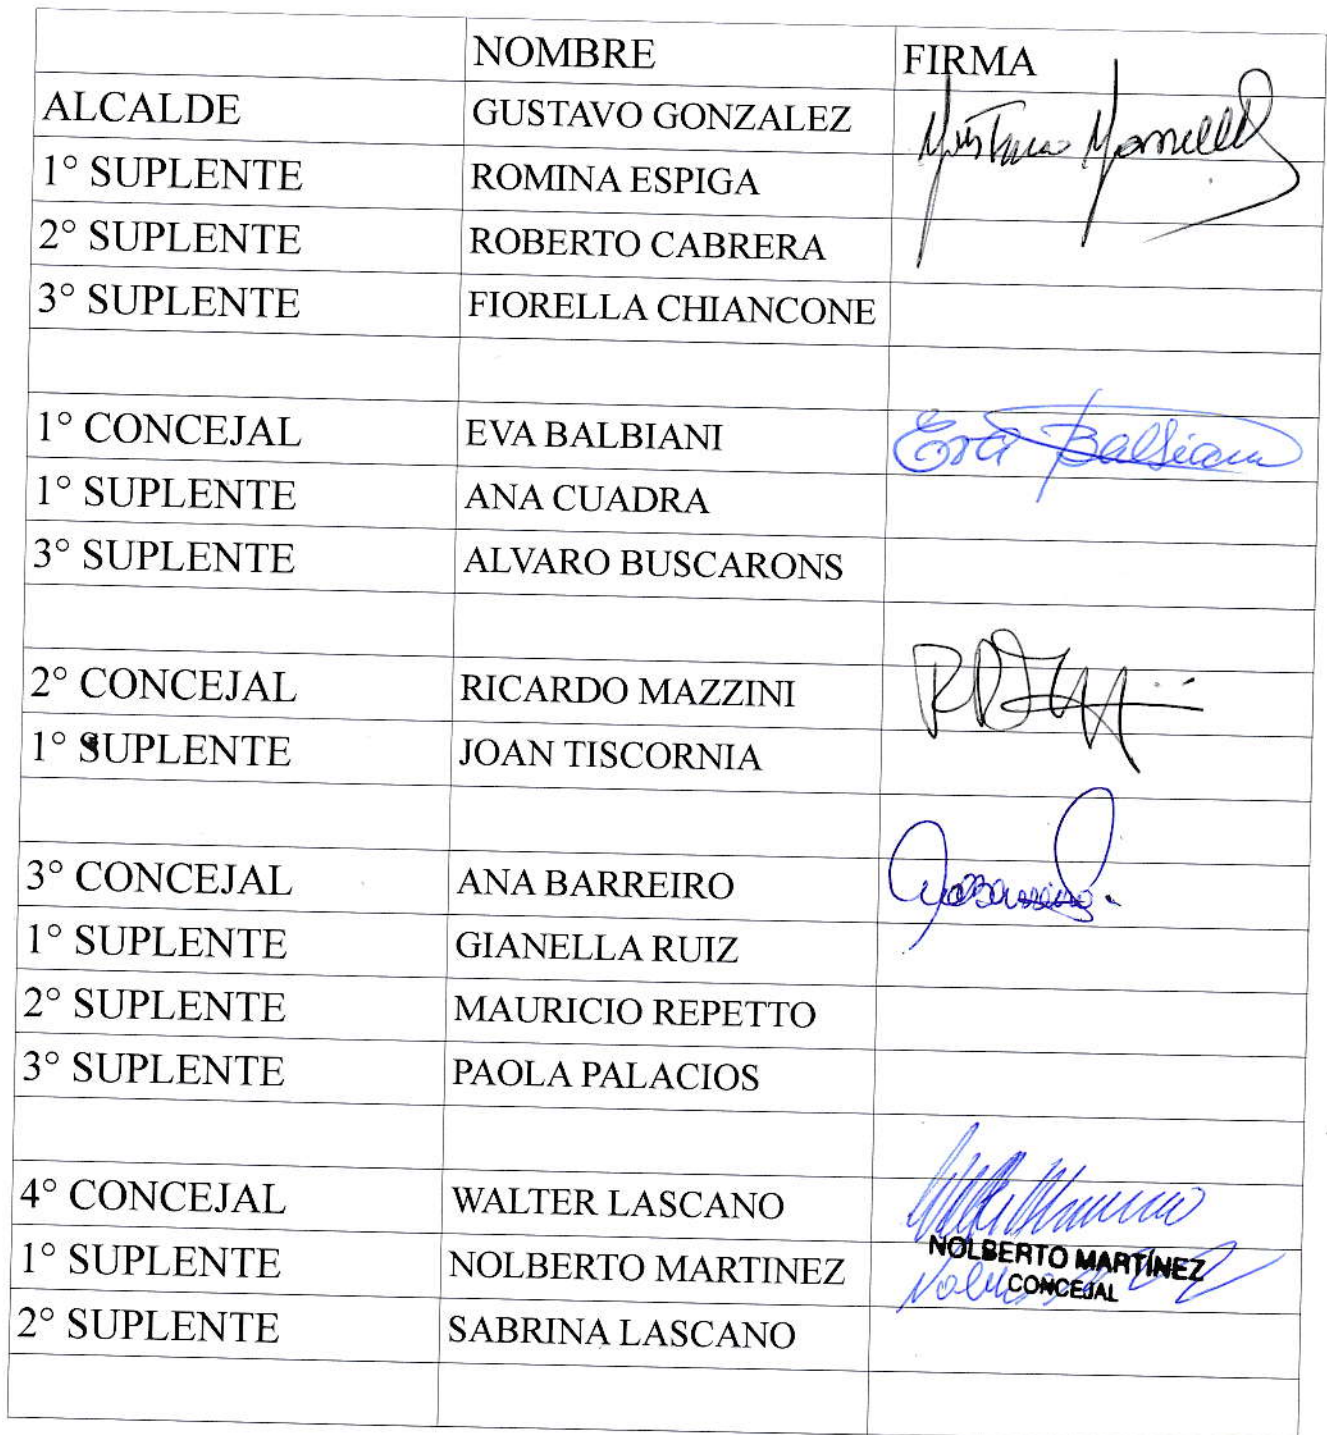 NOMBRE FIRMA
ALCALDE GUSTAVO GONZALEZ
1° SUPLENTE ROMINA ESPIGA
2° SUPLENTE ROBERTO CABRERA
3° SUPLENTE FIORELLA CHIANCONE
1° CONCEJAL EVA BALBIANI Eva Balbiani
1° SUPLENTE ANA CUADRA
3° SUPLENTE ALVARO BUSCARONS
2° CONCEJAL RICARDO MAZZINI
1° SUPLENTE JOAN TISCORNIA
3° CONCEJAL ANA BARREIRO
1° SUPLENTE GIANELLA RUIZ
2° SUPLENTE MAURICIO REPETTO
3° SUPLENTE PAOLA PALACIOS
4° CONCEJAL WALTER LASCANO
1° SUPLENTE NOLBERTO MARTINEZ NOLBERTO MARTÍNEZ
CONCEJAL
2° SUPLENTE SABRINA LASCANO